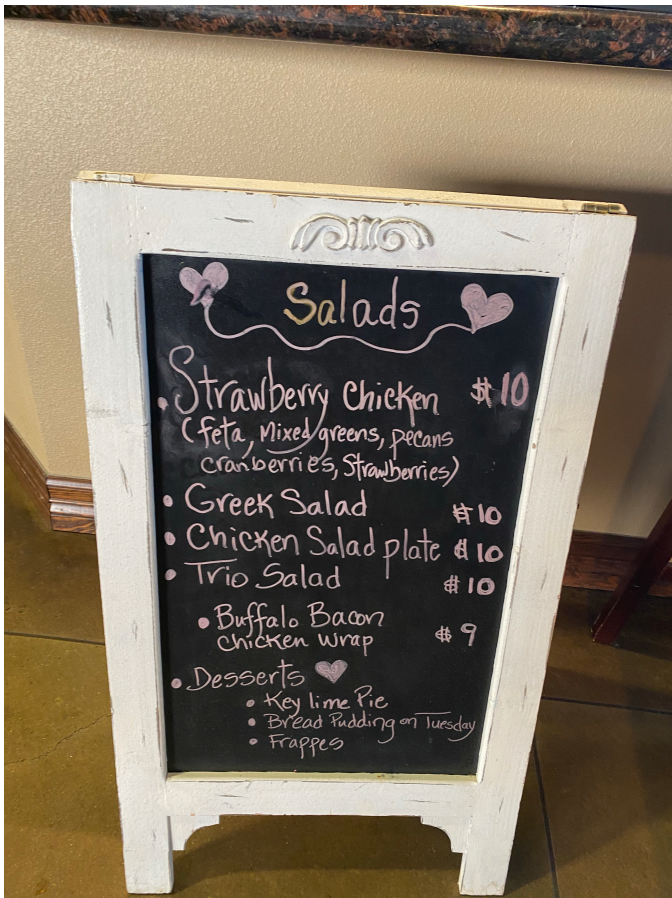 Salads
• Strawberry Chicken $10
(feta, Mixed greens, pecans
cranberries, Strawberries)
• Greek Salad $10
• Chicken Salad plate $10
• Trio Salad $10
• Buffalo Bacon
chicken wrap $9
• Desserts
• Key lime Pie
• Bread Pudding on Tuesday
• Frappes